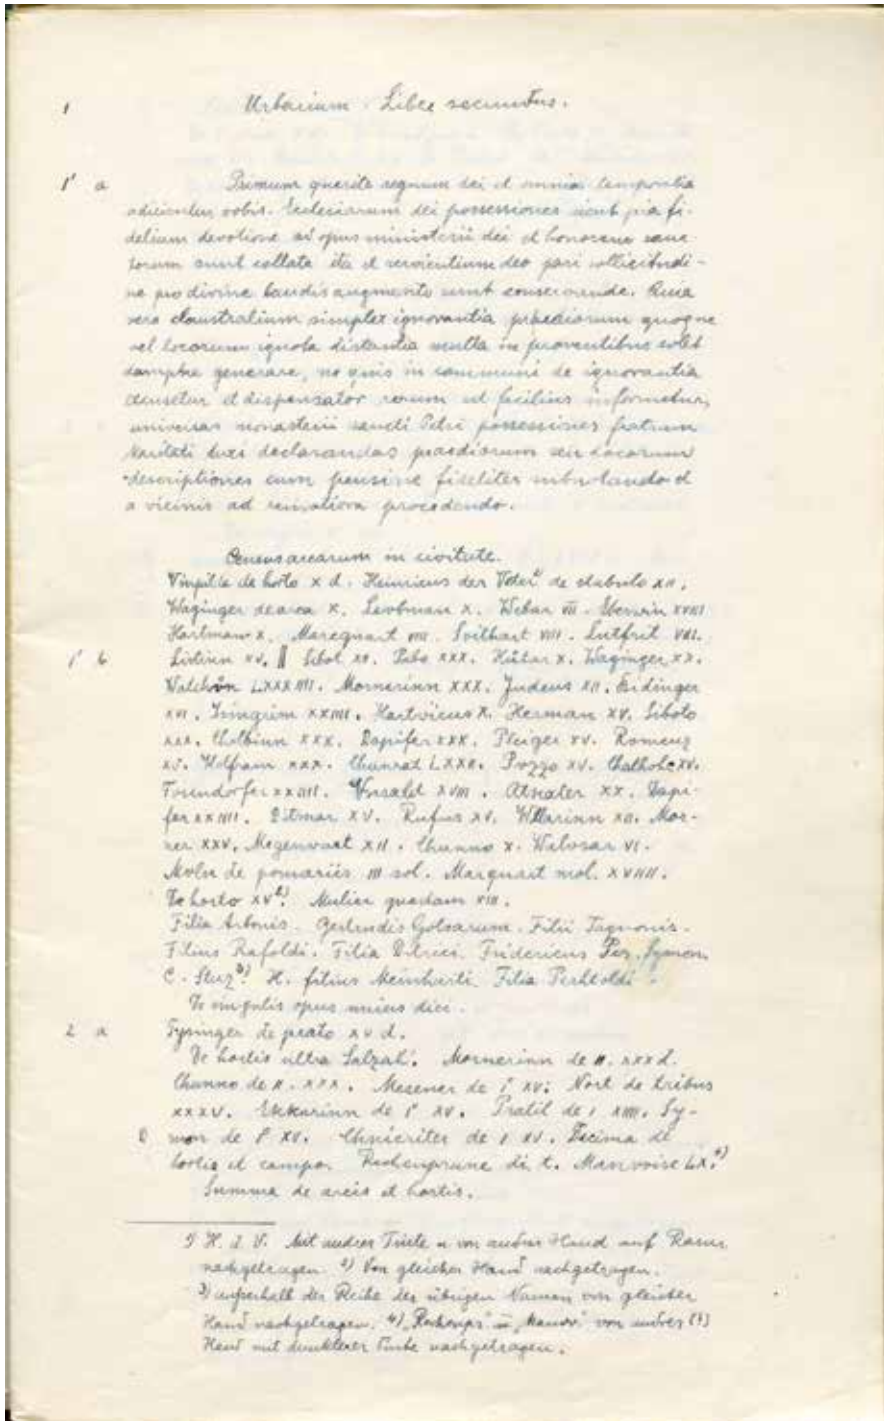 1 Urbarium. Liber secundus.
1' a Primum querite regnum dei et omnia temporalia
adicientur vobis. Ecclesiarum dei possessiones sicut pia fi-
delium devotione ad opus ministerii dei et honorem sanc
torum sunt collata ita et servientium deo pari sollicitudi-
ne pro divine laudis augmento sunt conservande. Quia
vero claustralium simplex ignorantia praediorum quoque
vel locorum ignota distantia multa in proventibus solet
dampna generare, ne quis in communi de ignorantia
causetur et dispensator rerum ut facilius informetur,
universas monasterii sancti Petri possessiones fratrum
karitati duxi declarandas praediorum seu locorum
descriptiones cum pensione fideliter subnotando et
a vicinis ad remotiora procedendo.
Census arearum in civitate.
de horto x d. Heinricus der de stabulo XII.
Waginger de area X. Liubman X. Webar VII. Eberwin XVIII
Hartman X. Marquart VIII. VIII. Lutfrit VIII.
1' b XV. || Sibot XV. Pabo XXX. X. Waginger XX.
LXXXIIII. Mornerinn XXX. Judeus XII. Eidinger
XVI. Isingrim XXIIII. Hartvicus X. Herman XV. Siboto
XXX. XXX. Dapifer XXX. XV.
XV. Wolfram XXX. Chunrat LXXX. Pozzo XV. Chalhohc XV.
XXIIII. XVIII. XX. Dapi-
fer XXIIII. Ditmar XV. Rufus XV. XII. Mor-
ner XXV. Megenwart XII. Chunno X. VI.
de pomariis III sol. Marquart mol. XVIIII.
De horto XV 2). Mulier quedam VIII.
Filia Arbonis. Gertrudis Golsarum. Filii Tagnonis.
Filius Rafoldi. Filia Ditrici. Fridericus Pez. Symon.
C. 3) H. filius Meinharti. Filia Perhtoldi.
De singulis opus unius diei.
2 a Gysinger de prato XV d.
De hortis ultra Salzah. Mornerinn de II. XXX d.
Chunno de II. XXX. Mesener de I XV. Nort de tribus
XXXV. Ekkarinn de I XV. Pratil de I XIIII. Sy-
mon de I XV. de I XV. Decima de
hortis et campo. Rechenprune di. t. LX. 4)
Summa de areis et hortis.
1) H. d. V. Mit andrer Tinte u. von andrer Hand auf Rasur
nachgetragen. 2) Von gleicher Hand nachgetragen.
3) außerhalb der Reihe der übrigen Namen von gleicher
Hand nachgetragen. 4) von andrer (?)
Hand mit dunklerer Tinte nachgetragen.